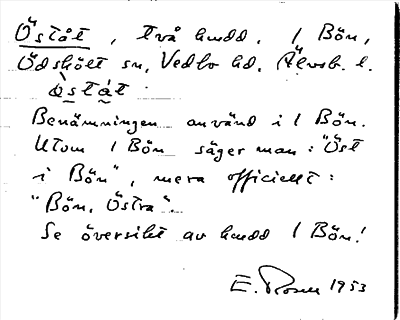 Öståt, två hmdd. i Bön,
Ödskölt sn, Vedbo hd, Älvsb. l.
östát.
Benämningen använd i i Bön.
Utom i Bön säger man: "Öst
i Bön", mera officiellt:
"Bön, Östra".
Se översikt av hmdd i Bön!
E. Rosen 1953